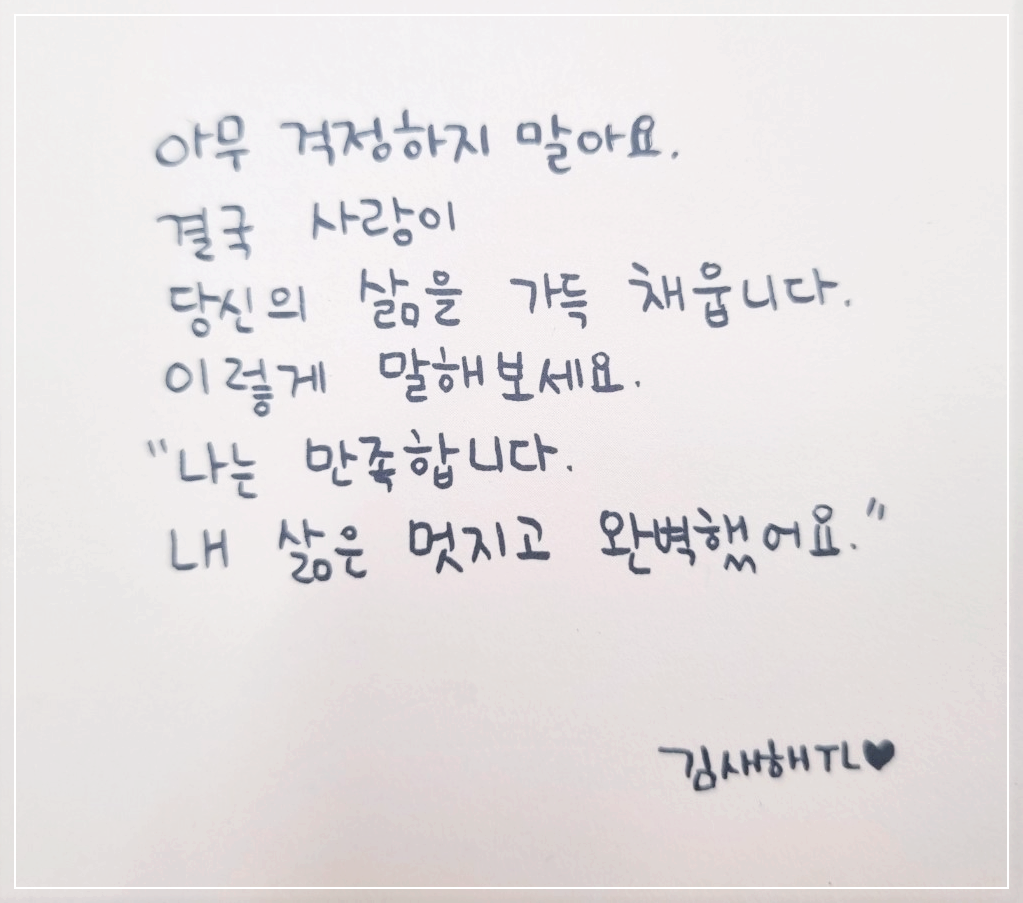 아무 걱정하지 말아요.
결국 사랑이
당신의 삶을 가득 채웁니다.
이렇게 말해보세요.
"나는 만족합니다.
내 삶은 멋지고 완벽했어요."
김새해TL♥